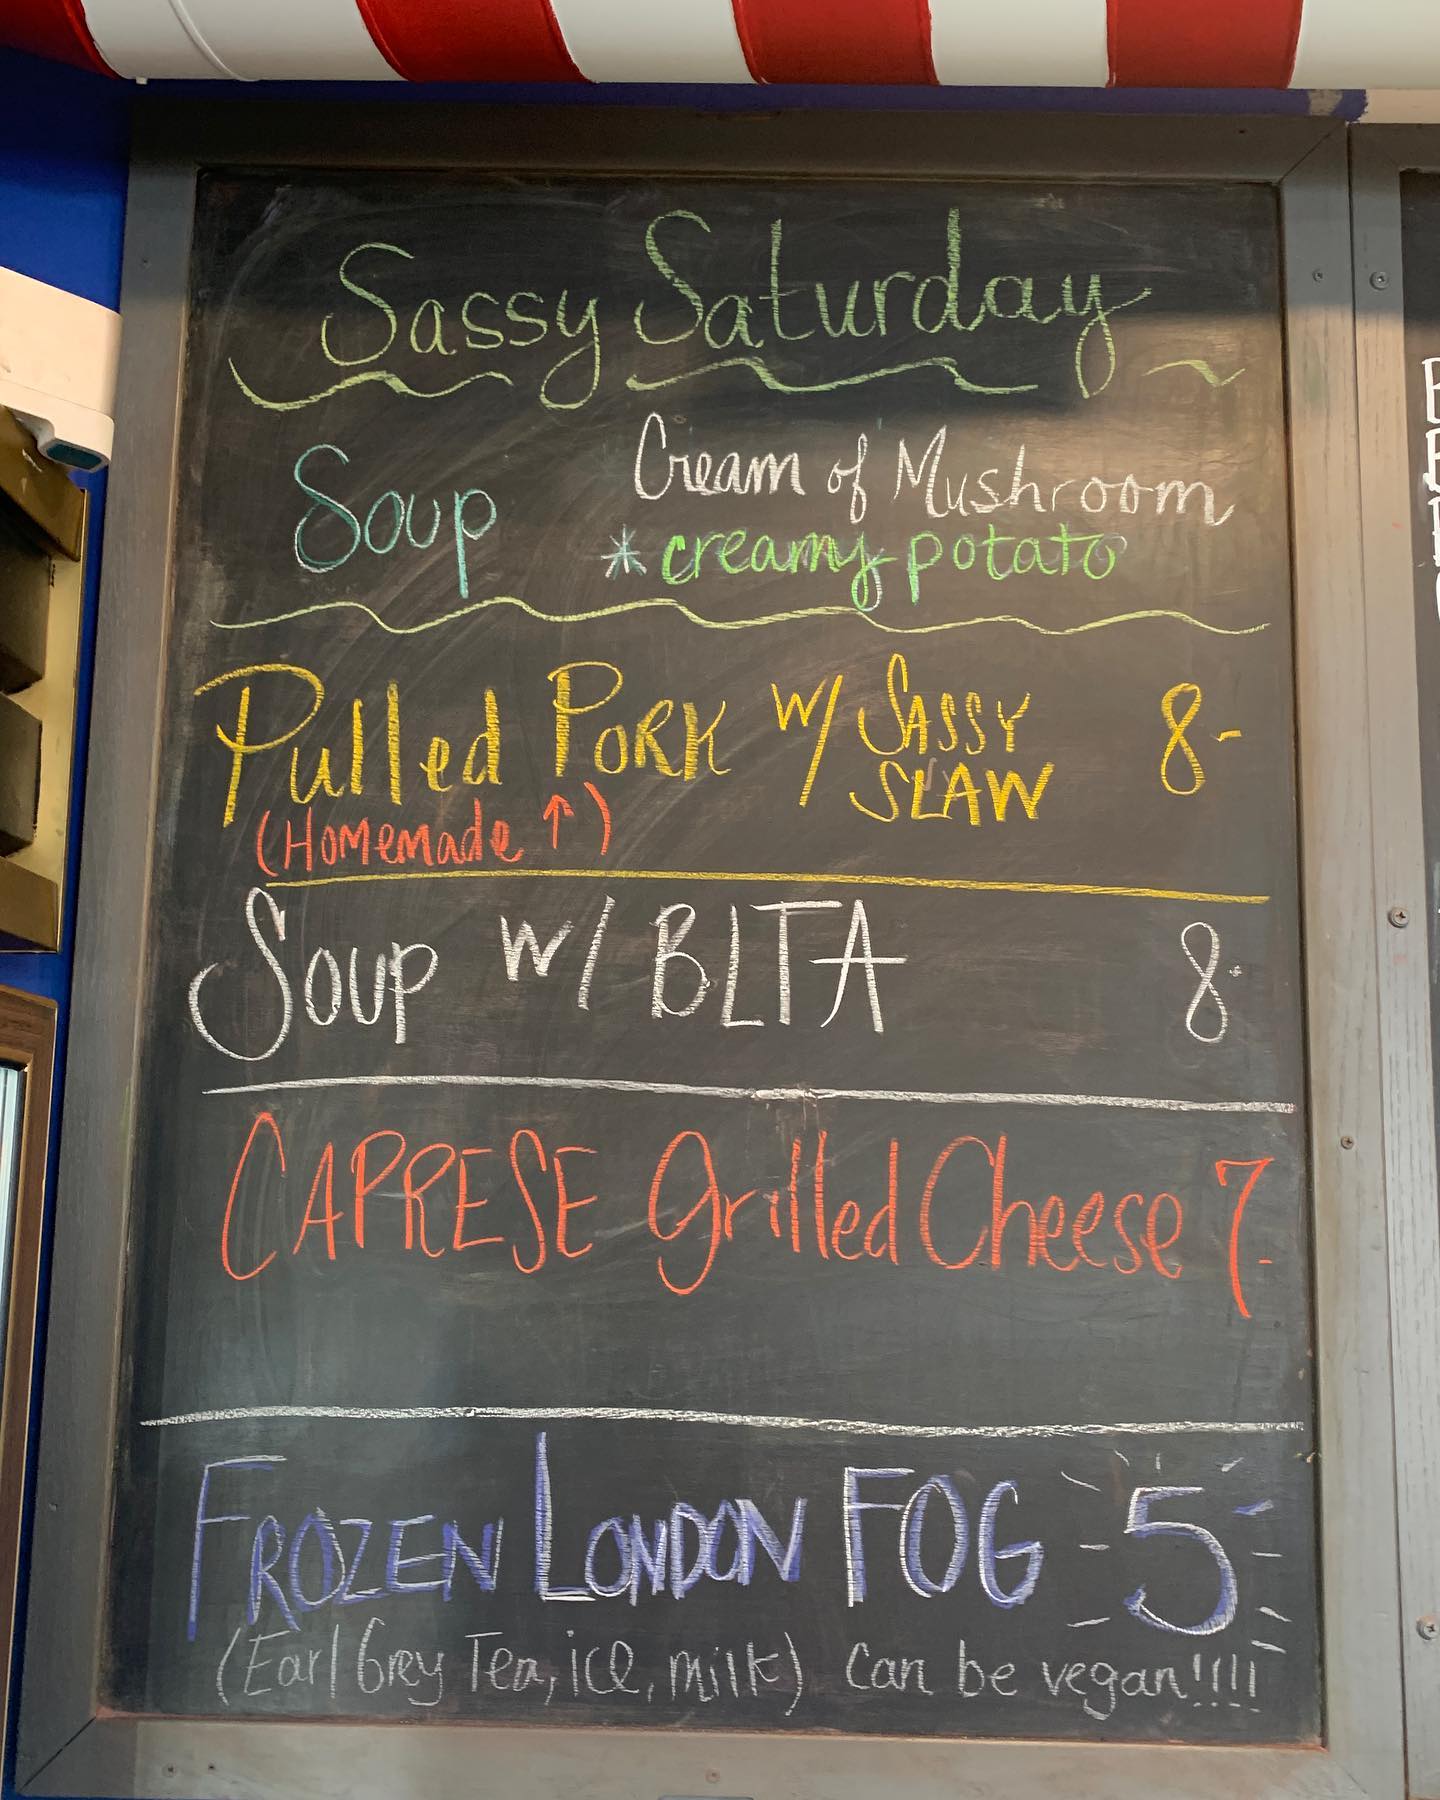 Sassy Saturday
Soup Cream of Mushroom
*creamy potato
Pulled Pork w/ Sassy 8-
SLAW
(Homemade ↑)
Soup w/ BLTA 8-
CAPRESE Grilled Cheese 7-
FROZEN LONDON FOG 5
(Earl Grey Tea, ice, milk) can be vegan!!!!